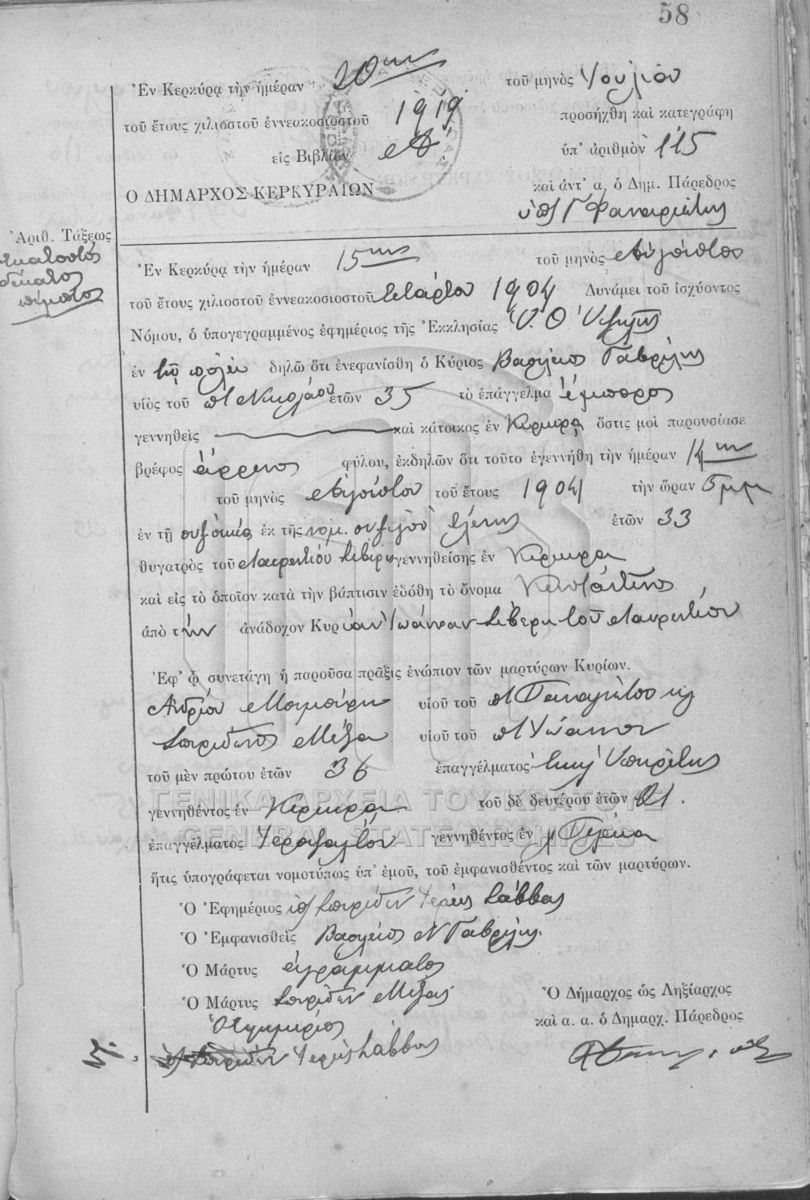 58
Ἐν Κερκύρᾳ τὴν ἡμέραν 20ην τοῦ μηνὸς Ἰουλίου
τοῦ ἔτους χιλιοστοῦ ἐννεακοσιοστοῦ 1919 προσήχθη καὶ κατεγράφη
εἰς Βιβλίον ὑπ' ἀριθμὸν 115
Ο ΔΗΜΑΡΧΟΣ ΚΕΡΚΥΡΑΙΩΝ καὶ ἀντ' α. ὁ Δημ. Πάρεδρος
ὑπ Γ Φαναριώτης
Ἀριθ. Τάξεως
ἑκατοστὸς
δέκατος
πέμπτος
Ἐν Κερκύρᾳ τὴν ἡμέραν 15ην τοῦ μηνὸς Αὐγούστου
τοῦ ἔτους χιλιοστοῦ ἐννεακοσιοστοῦ τετάρτου 1904 Δυνάμει τοῦ ἰσχύοντος
Νόμου, ὁ ὑπογεγραμμένος ἐφημέριος τῆς Ἐκκλησίας Υ. Θ
ἐν τῇ πόλει δηλῶ ὅτι ἐνεφανίσθη ὁ Κύριος Βασίλειος Γαβρίλης
υἱὸς τοῦ π Νικολάου ἐτῶν 35 τὸ ἐπάγγελμα ἔμπορος
γεννηθεὶς καὶ κάτοικος ἐν Κερκύρᾳ ὅστις μοὶ παρουσίασε
βρέφος ἄρρενος φύλου, ἐκδηλῶν ὅτι τοῦτο ἐγεννήθη τὴν ἡμέραν 14ην
τοῦ μηνὸς Αὐγούστου τοῦ ἔτους 1904 τὴν ὥραν 5 μμ
ἐν τῇ ἐκ τῆς νομ. συζύγου Ἑλένης ἐτῶν 33
θυγατρὸς τοῦ Λαυρεντίου Σίβερη γεννηθείσης ἐν Κέρκυρα
καὶ εἰς τὸ ὁποῖον κατὰ τὴν βάπτισιν ἐδόθη τὸ ὄνομα Κωνσταντῖνος
ἀπὸ τὴν ἀνάδοχον Κυρίαν Ἰωάνναν Σίβερη τοῦ Λαυρεντίου
Ἐφ' ᾧ συνετάγη ἡ παροῦσα πρᾶξις ἐνώπιον τῶν μαρτύρων Κυρίων.
Ἀνδρέου υἱοῦ τοῦ π Παναγιώτου
Σπυρίδωνος Μέξα υἱοῦ τοῦ π Ἰωάννου
τοῦ μὲν πρώτου ἐτῶν 36 ἐπαγγέλματος Ὑπηρέτης
γεννηθέντος ἐν Κέρκυρα τοῦ δὲ δευτέρου ἐτῶν 21.
ἐπαγγέλματος Ἱεροψάλτου γεννηθέντος ἐν Πέλεκα
ἥτις ὑπογράφεται νομοτύπως ὑπ' ἐμοῦ, τοῦ ἐμφανισθέντος καὶ τῶν μαρτύρων.
Ὁ Ἐφημέριος Σπυρίδων Ἱερεὺς Σάββας
Ὁ Ἐμφανισθεὶς Βασίλειος Ν Γαβρίλης
Ὁ Μάρτυς ἀγράμματος
Ὁ Μάρτυς Σπυρίδων Μέξας
Ὁ Ἐφημέριος
Σπυρίδων Ἱερεὺς Σάββας
Ὁ Δήμαρχος ὡς Ληξίαρχος
καὶ α. α. ὁ Δημαρχ. Πάρεδρος
ΓΕΝΙΚΑ ΑΡΧΕΙΑ ΤΟΥ ΚΡΑΤΟΥΣ
GENERAL STATE ARCHIVES